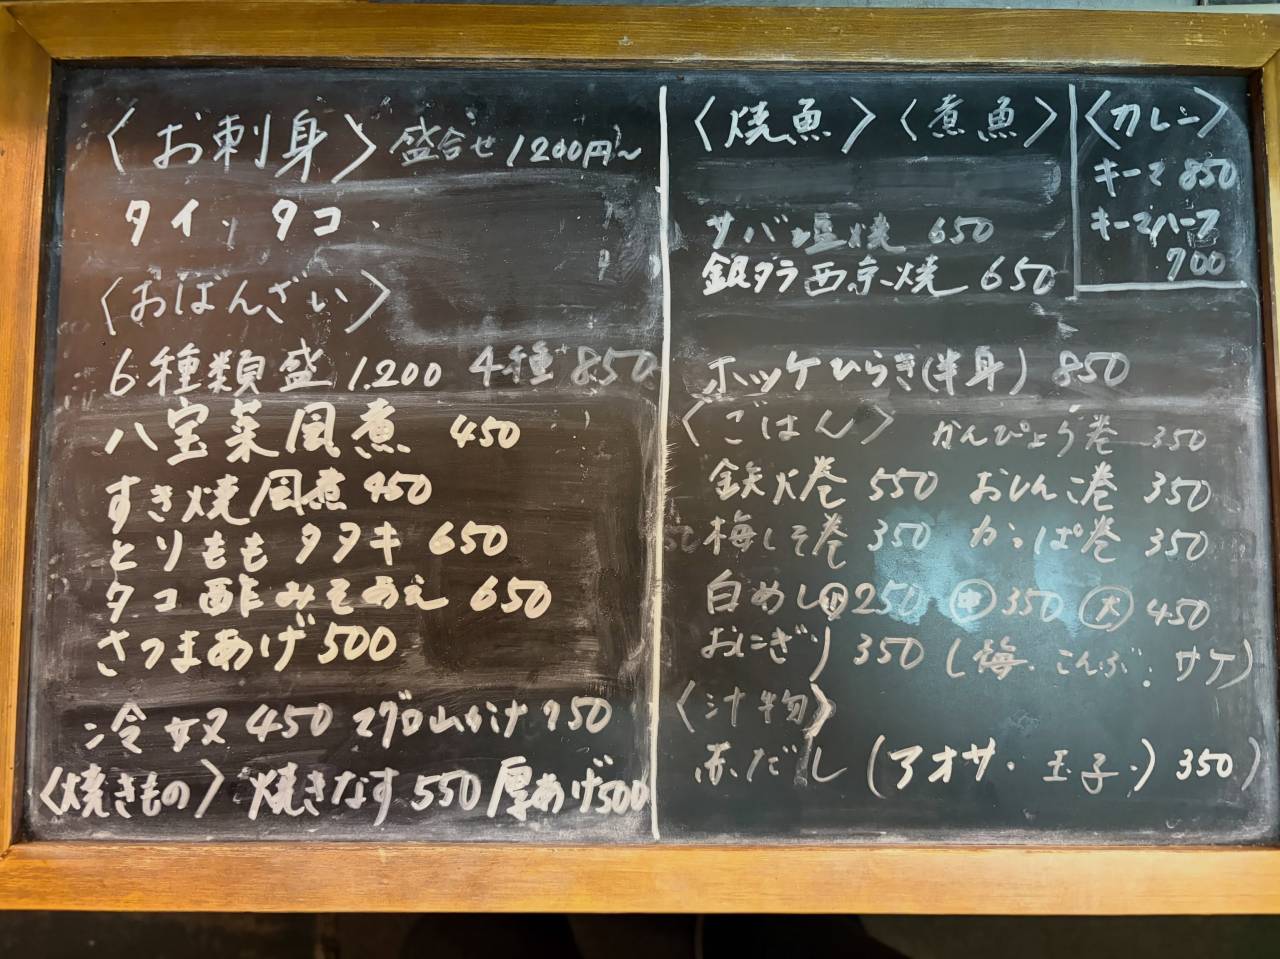 〈お刺身〉盛合せ1200円〜
タイ、タコ、
〈おばんざい〉
6種類盛 1.200 4種 850
八宝菜風煮 450
すき焼風煮 450
とりももタタキ 650
タコ酢みそあえ 650
さつまあげ 500
冷奴 450 マグロ山かけ 750
〈焼きもの〉焼きなす 550 厚あげ 500
〈焼魚〉〈煮魚〉
サバ塩焼 650
銀タラ西京焼 650
ホッケひらき(半身) 850
〈カレー〉
キーマ 850
キーマハーフ
700
〈ごはん〉 かんぴょう巻 350
鉄火巻 550 おしんこ巻 350
梅しそ巻 350 かっぱ巻 350
白めし㊥ 小 250 中 350 大 450
おにぎり 350 (梅・こんぶ・サケ)
〈汁物〉
赤だし(アオサ・玉子・) 350)